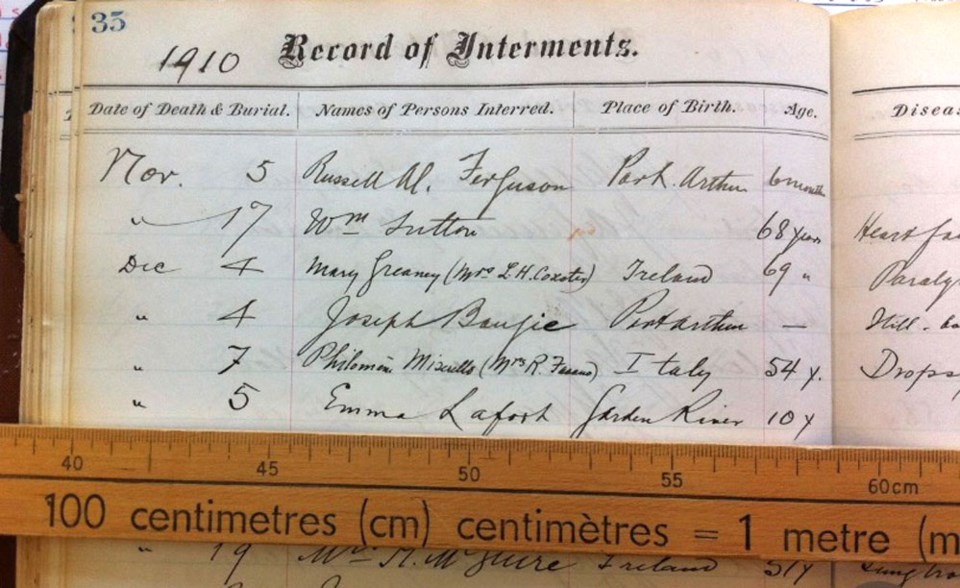 35
1910 Record of Interments.
Date of Death & Burial. Names of Persons Interred. Place of Birth. Age. Diseas
Nov. 5 Russell Ferguson Port. Arthur 6 months
" 17 Wm Sutton 68 years Heart
Dec 4 Mary Greaney (Mrs L.H. Coxster) Ireland 69 " Paraly
" 4 Joseph Port Arthur — Still-
" 7 Philomen (Mrs R. Italy 54 y. Drops
" 5 Emma Lafort Garden River 10 y
40 45 50 55 60cm
100 centimetres (cm) centimètres = 1 metre (m
" 19 Ireland 51 y